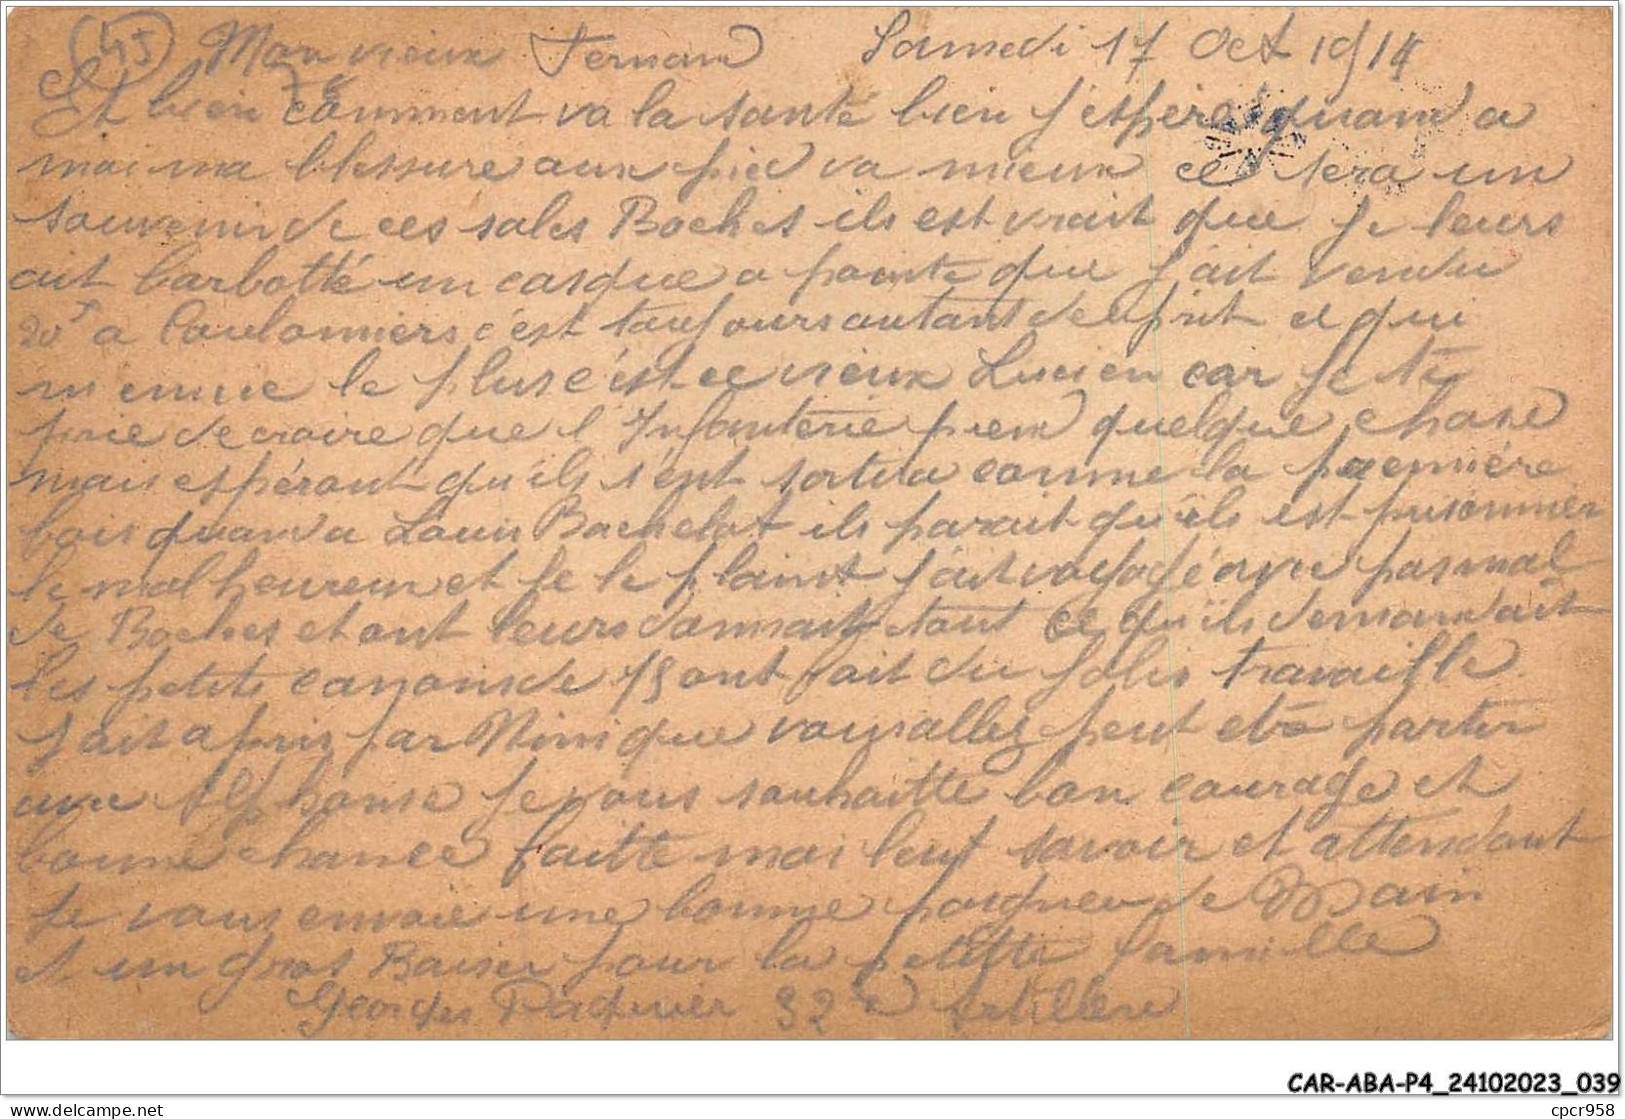 (45) Mon vieux Fernand Samedi 17 Oct 1914
Et bien comment va la santé bien j'espère quand a
moi ma blessure aux pied va mieux ce sera un
souvenir de ces sales Boches ils est vrait que je leurs
ait barbotté un casque a pointe que j'ait vendu
20f a Coulomiers c'est toujours autant de prit ce qui
m'ennue le plus c'est ce vieux Lucien car je te
prie de croire que l'Infanterie prend quelque chose
mais espérant qu'ils s'ent sortira comme la première
fois quand a Louis Bachelot ils parait qu'ils est prisonnier
le malheureux et je le plaint j'ait voyagé avec pas mal
de Boches et ont leurs donnait tout ce qu'ils demandait
les petits canons de 75 ont fait du jolis travaille
j'ait apris par Nini que vous allez peut etre partir
avec Alphonse je vous souhaitte bon courage et
bonne chance faitte moi leuf savoir et attendant
je vous envoie une bonne poignée de Main
et un gros Baiser pour la petitte famille
Georges Paquier 32e Artillerie
CAR-ABA-P4_24102023_039
delcampe.net
cpcr958